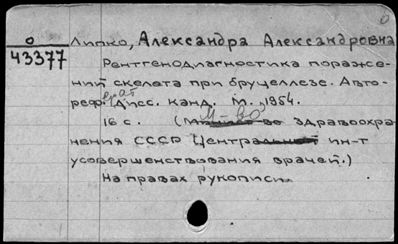 О
О
43377
Липко, Александра Александровна
Рентгенодиагностика пораже-
ний скелета при бруцеллезе. Авто-
реферат Дисс. канд. М., 1954.
16 с. (М-во здравоохра-
нения СССР Централь ин-т
усовершенствования врачей.)
На правах рукописи.